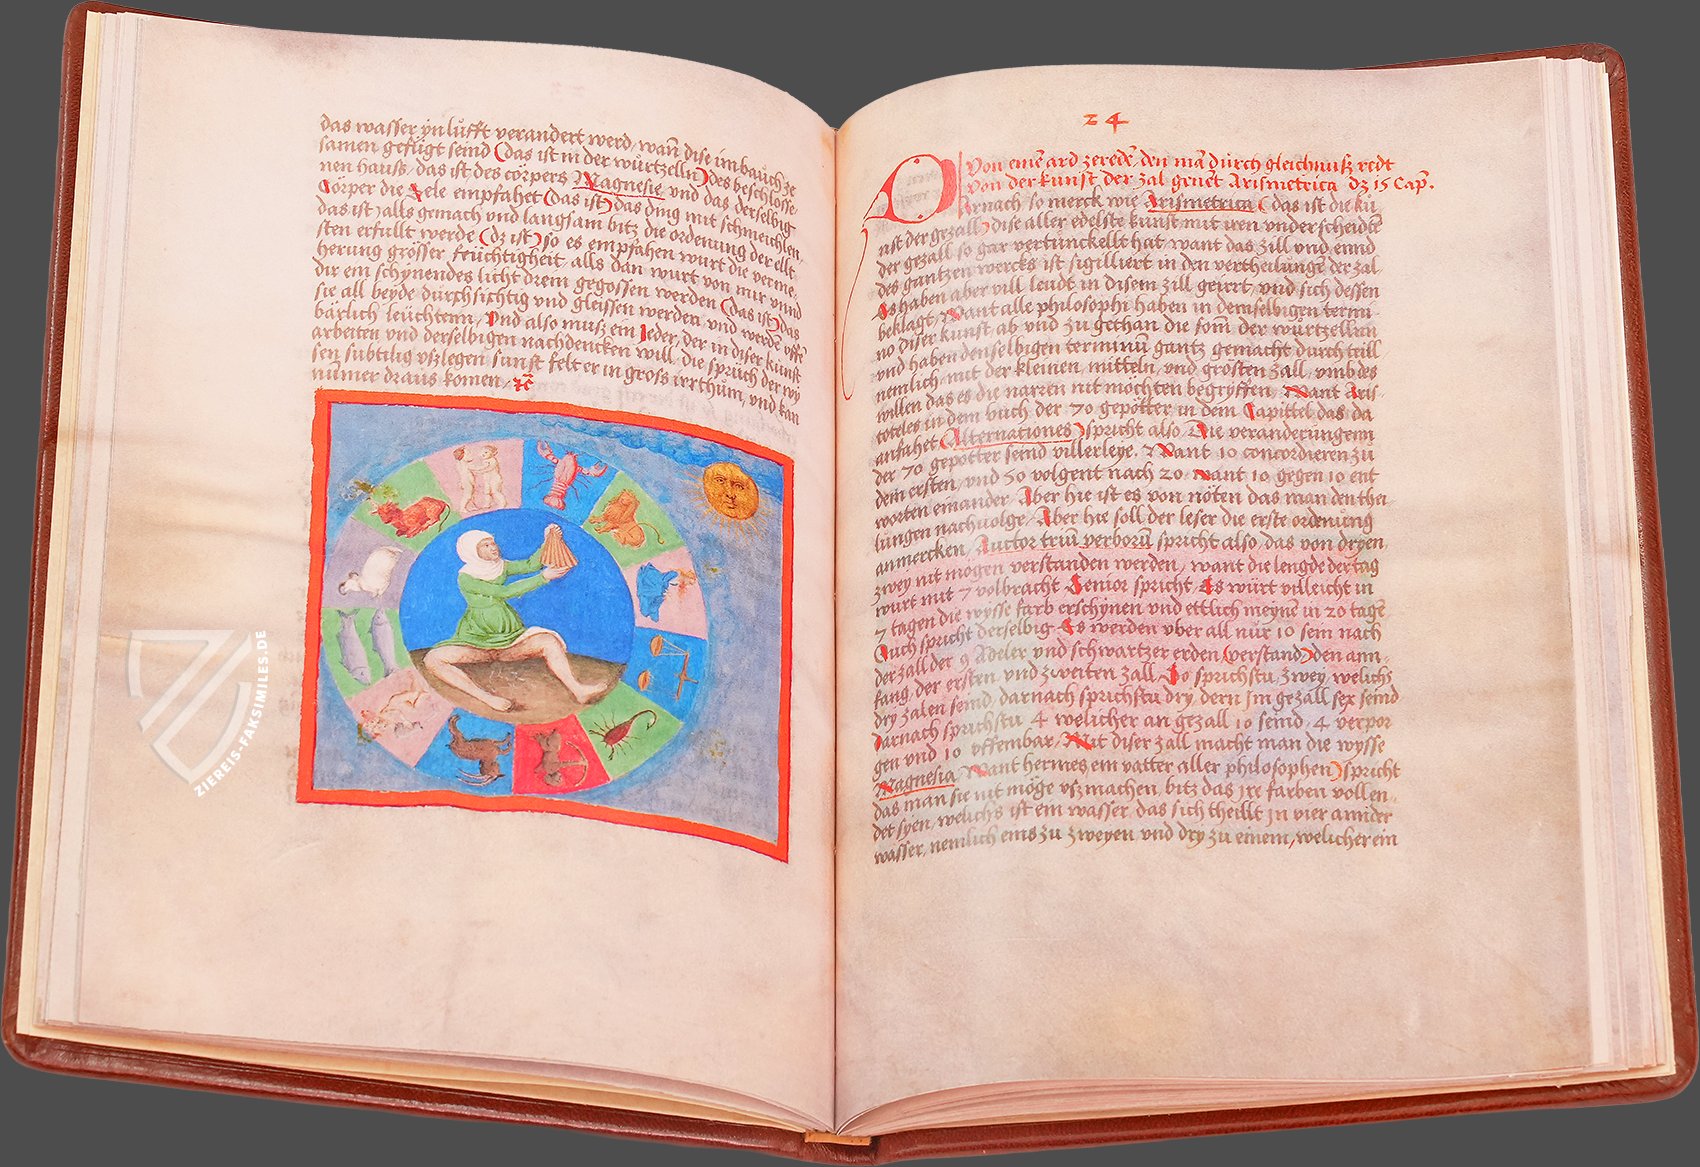 das wasser ÿn lufft verandert werd, wañ dise im bauch ze
samen gefügt seind (das ist in der würtzelln) des beschlosse-
nen hauss, das ist des cörpers Magnesie und das derselbig
Cörper die Sele empfahet (das ist) das ding mit schmeichlen,
das ist alls gemach und langsam bitz die ordenung der ellt-
sten erfullt werde (dz ist) so es empfahen wurt die verme-
herung grösser feuchtigheit, alls dan wurt von mir und
dir ein schynendes licht drein gegossen werden (das ist) das
sie all beyde durchsichtig und gleissen werden, und werdē offē
barlich leüchtenn, Und also muss ein Jeder, der in diser kunst
arbeiten und derselbigen nachdencken will, die sprüch der wy
sen subtilig vsslegen sunst felt er in gross irrthum, und kan
nümer draus komen,
24
Von einē ard zeredē, den mā durch gleichnuss redt
Von der kunst der zal genēt Arismetrica dz 15 Cap.
Darnach so merck wie Arismetrica (das ist die kü
nst der gezall) dise aller edelste kunst mit iren underscheidē
der gezall so gar vertunckellt hat want das zill und ennd
des gantzen wercks ist sigilliert in den vertheilungē der zal
Es haben aber vill leudt in disem zill geirrt, und sich dessen
beklagt, Want alle philosophi haben in demselbigen termi-
no diser kunst ab und zu gethan die form der würtzellnn
und haben denselbigen terminū gantz gemacht durch trill
nemlich, mit der kleinen, mitteln, und grosten zall, umb des
willen das es die narren nit möchten begryffen, Want Aris-
toteles in dem buch der 70 gepötter in dem Capittel das da
anfahet (Alternationes) spricht also, Die veranderungenn
der 70 gepötter seind villerleye. Want 10 concordieren zu
dem ersten, und 50 volgent nach 20. Want 10 gegen 10 ent
worten einander, Aber hie ist es von nöten das man den thei
lungen nachvolge, Aber hie soll der leser die erste ordenung
anmercken, Auctor triū verborū spricht also, das von dryen,
zwey nit mögen verstanden werden, want die lengde der tag
wurt mit 7 volbracht Senior spricht, Es würt villeicht in
7 tagen die wysse farb erschynen und ettlich meynē in 20 tagē
Ouch spricht derselbig Es werden über all nür 10 sein nach
der zall der 9 Adeler und schwartzer erden (verstand) den ann-
fang, der ersten und zweiten zall, So sprichstu, zwey, welichs
dry zalen seind, darnach sprichstu dry, dern Jm gezall sex seind
Darnach sprichstu 4 welicher an gezall 10 seind, 4 verpor
gen und 10 offembar, Mit diser zall macht man die wysse
Magnesia Want hermes ein vatter aller philosophen) spricht
das man sie nit möge vszmachen, bitz das jre farben vollen-
det syen, welichs ist ein wasser, das sich theillt Jn vier ander
wasser, nemlich eins zu zweyen und dry zu einem, welicher ein
ZIEREIS-FAKSIMILES.DE